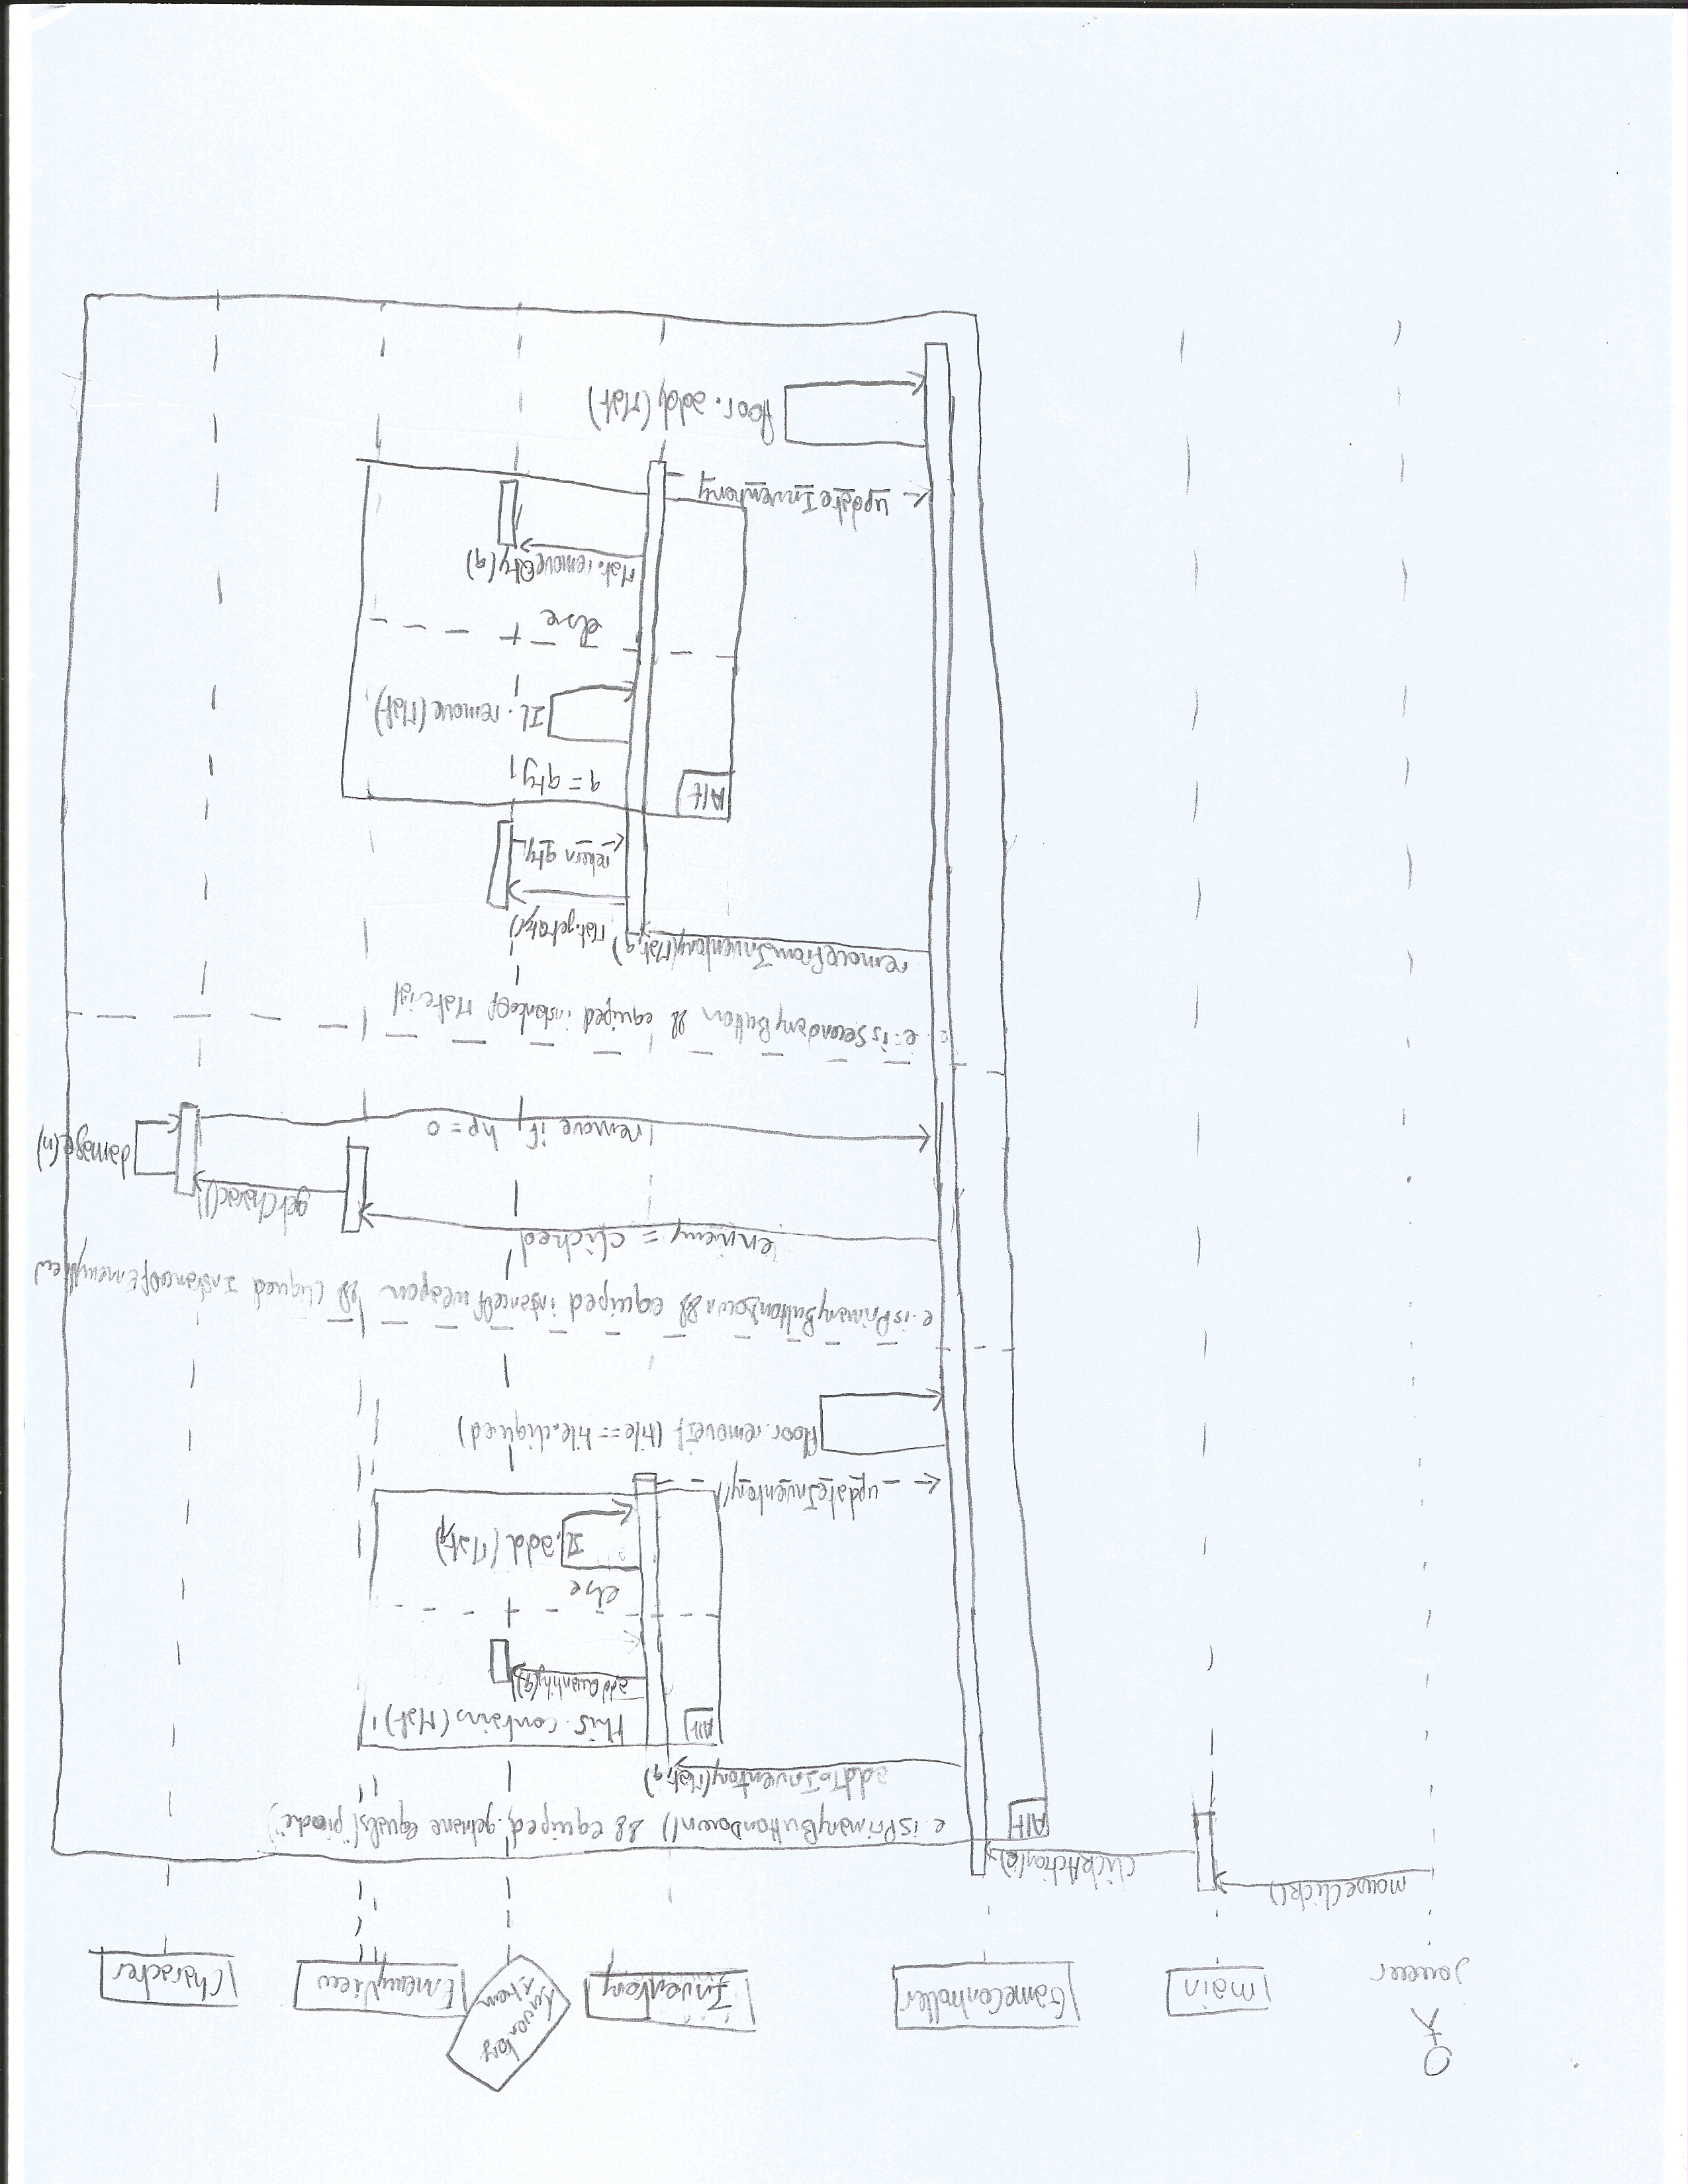 joueur
main
GameController
Inventory
Inventory
Item
EnemyView
Character
mouseClick()
clickAction(e)
Alt
e.isPrimaryButtonDown() && equiped.getname equals("pioche")
addToInventory(Mat,q)
Alt
this.contains(Mat)
addQuantity(q)
else
Il.add(Mat,q)
updateInventory()
floor.removeIf (tile==tile.cliqued)
e.isPrimaryButtonDown && equiped instanceOf weapon && cliqued InstanceOf EnemyView
ennemy = clicked
getCharac()
damage(n)
remove if hp=0
e.isSecondaryButton && equiped instanceOf Material
removeFromInventory(Mat,q)
Mat.getQty()
return qty
Alt
q = qty
Il.remove(Mat)
else
Mat.removeQty(q)
updateInventory
floor.add(Mat)